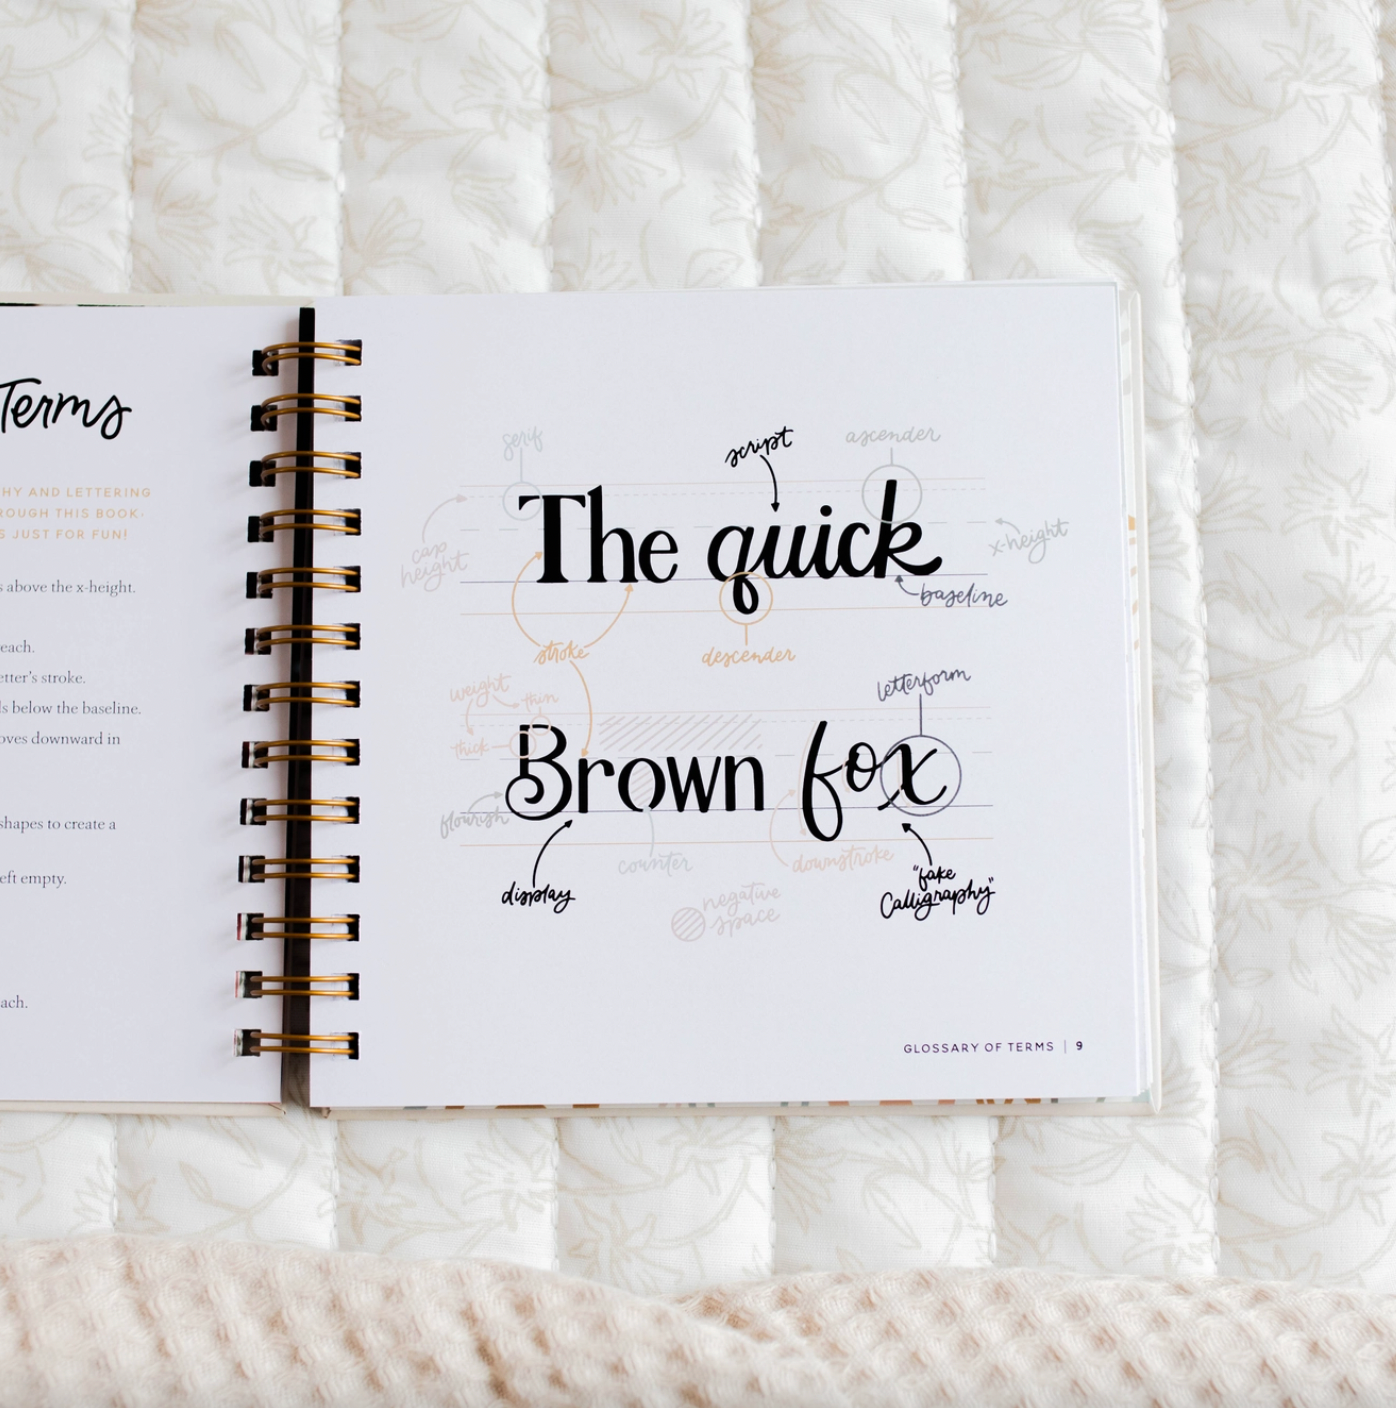 Terms
HY AND LETTERING
ROUGH THIS BOOK-
S JUST FOR FUN!
s above the x-height.
each.
etter's stroke.
ls below the baseline.
oves downward in
shapes to create a
eft empty.
ach.
serif
script
ascender
The quick
cap
height
x-height
baseline
stroke
descender
weight
thin
thick
letterform
Brown fox
flourish
counter
downstroke
display
negative
space
"fake
Calligraphy"
GLOSSARY OF TERMS | 9